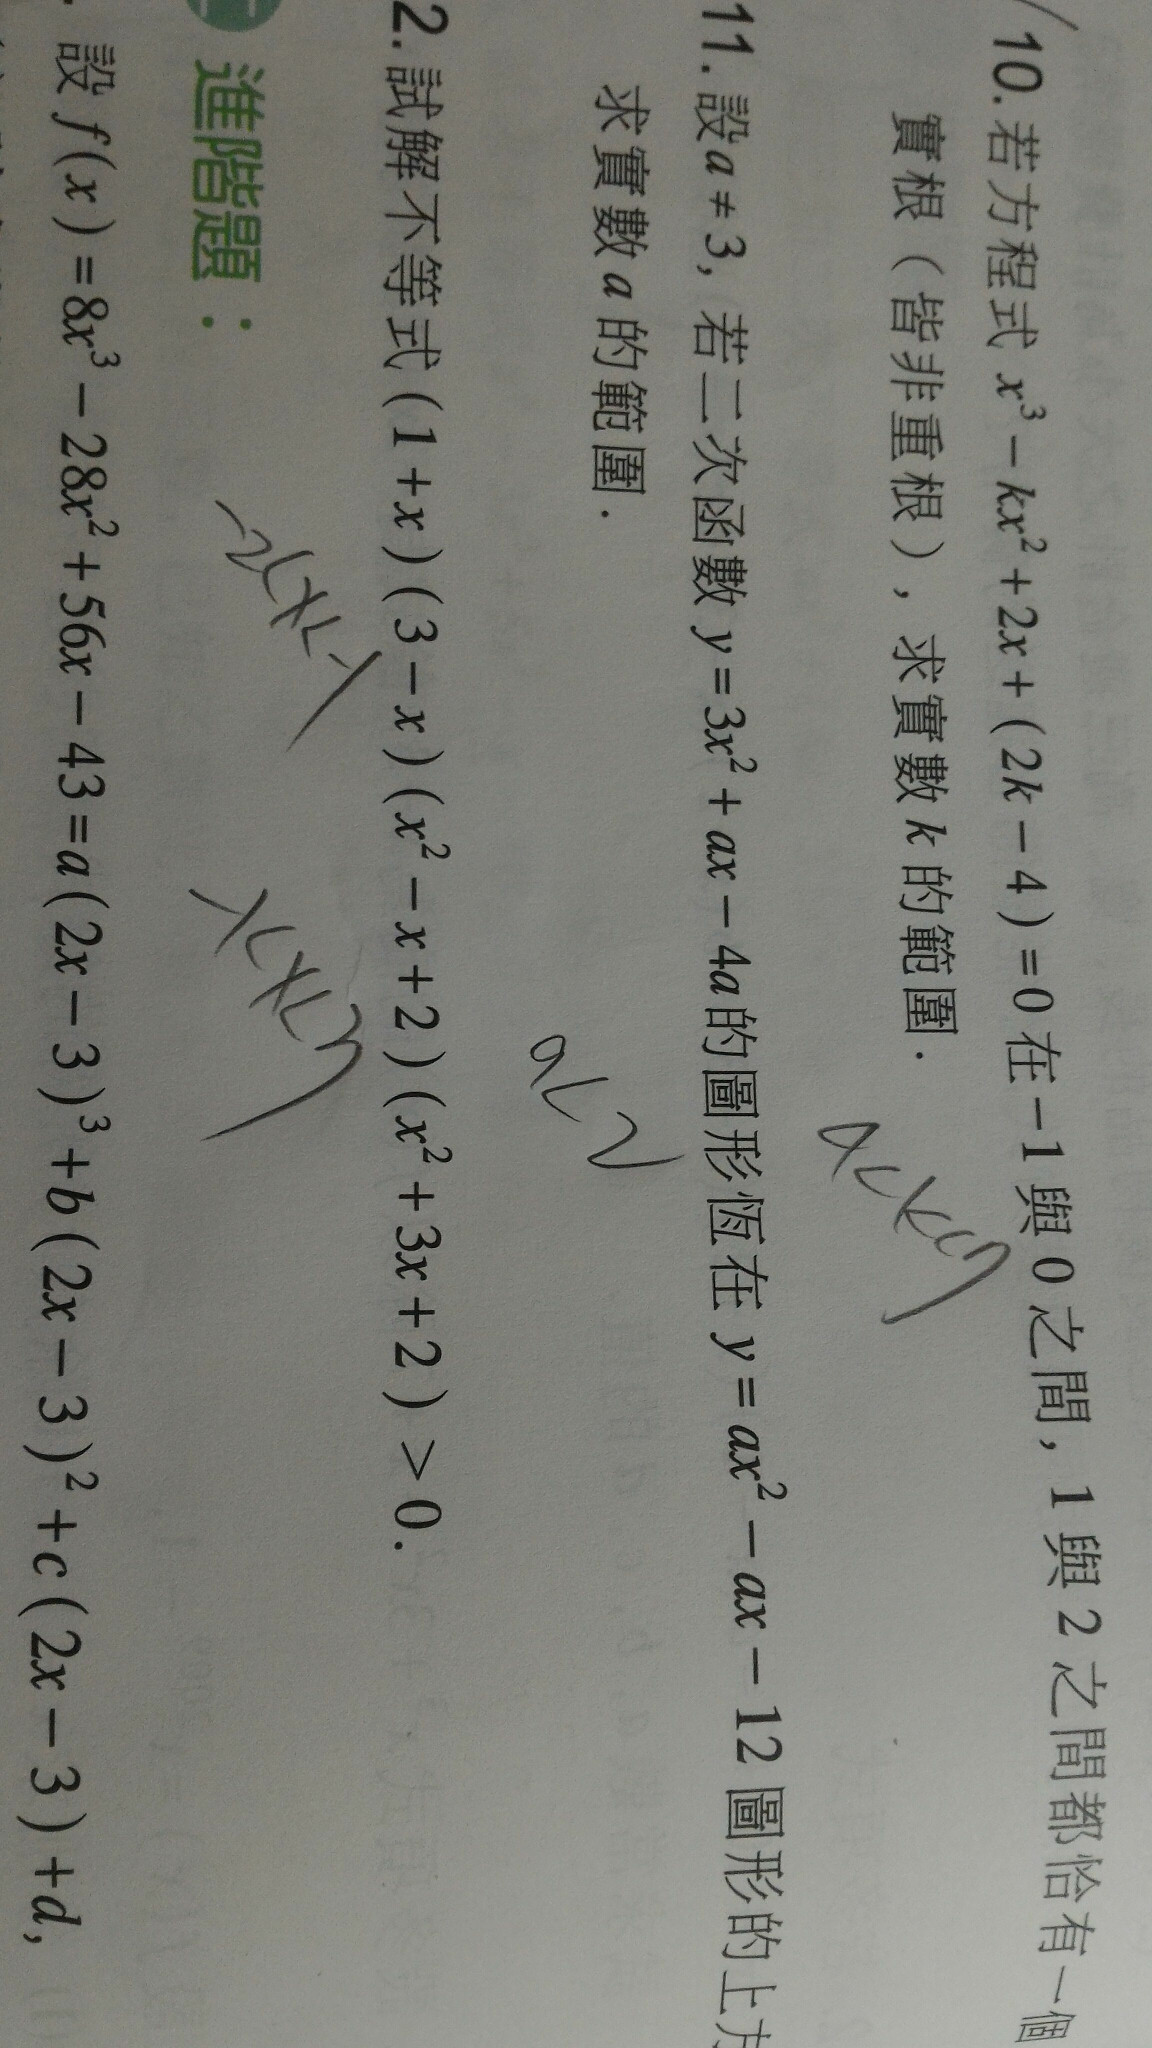 10.若方程式 x³－kx²＋2x＋(2k－4)＝0 在 －1 與 0 之間，1 與 2 之間都恰有一個
實根（皆非重根），求實數 k 的範圍．
4<k<7
11.設 a≠3，若二次函數 y＝3x²＋ax－4a 的圖形恆在 y＝ax²－ax－12 圖形的上方
求實數 a 的範圍．
a<2
2.試解不等式 (1＋x)(3－x)(x²－x＋2)(x²＋3x＋2)＞0．
-2<x<-1 -1<x<3
進階題：
設 f(x)＝8x³－28x²＋56x－43＝a(2x－3)³＋b(2x－3)²＋c(2x－3)＋d，